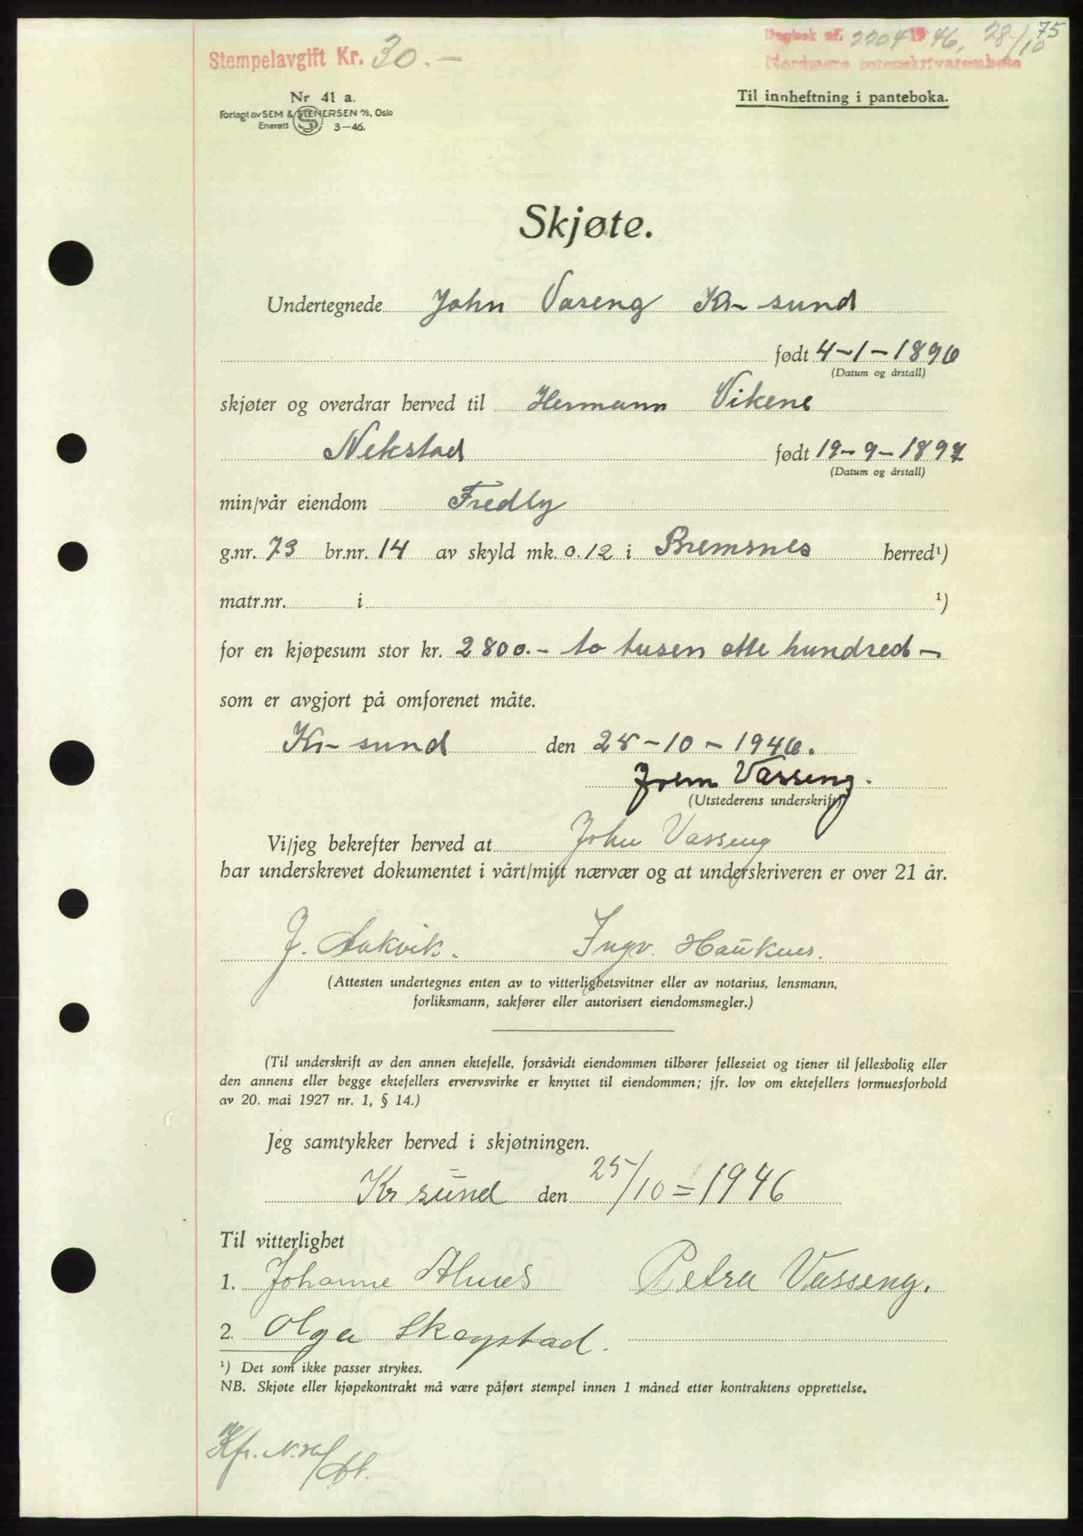 75
Stempelavgift Kr. 30.-
Dagbok nr. 2204 1946, 28/10
Nordmøre sorenskriverembete
Nr 41 a.
Forlagt av SEM & STENERSEN A/S, Oslo
Enerett 3-46.
Til innheftning i panteboka.
Skjøte.
Undertegnede John Vaseng Kr-sund
født 4-1-1896
(Datum og årstall)
skjøter og overdrar herved til Hermann Vikene
Nekstad født 19-9-1897
(Datum og årstall)
min/vår eiendom Fredly
g.nr. 73 br.nr. 14 av skyld mk. 0.12 i Bremsnes herred¹)
matr.nr. i ¹)
for en kjøpesum stor kr. 2800.- to tusen otte hundred-
som er avgjort på omforenet måte.
Kr-sund den 25-10-1946.
John Vasseng.
(Utstederens underskrift)
Vi/jeg bekrefter herved at John Vasseng
har underskrevet dokumentet i vårt/mitt nærvær og at underskriveren er over 21 år.
J. Aakvik. Ingv. Hauknes.
(Attesten undertegnes enten av to vitterlighetsvitner eller av notarius, lensmann,
forliksmann, sakfører eller autorisert eiendomsmegler.)
(Til underskrift av den annen ektefelle, forsåvidt eiendommen tilhører felleseiet og tjener til fellesbolig eller
den annens eller begge ektefellers ervervsvirke er knyttet til eiendommen; jfr. lov om ektefellers formuesforhold
av 20. mai 1927 nr. 1, § 14.)
Jeg samtykker herved i skjøtningen.
Kr sund den 25/10=1946
Til vitterlighet
1. Johanne Alnes Petra Vasseng.
2. Olga Skogstad.
¹) Det som ikke passer strykes.
NB. Skjøte eller kjøpekontrakt må være påført stempel innen 1 måned etter kontraktens opprettelse.